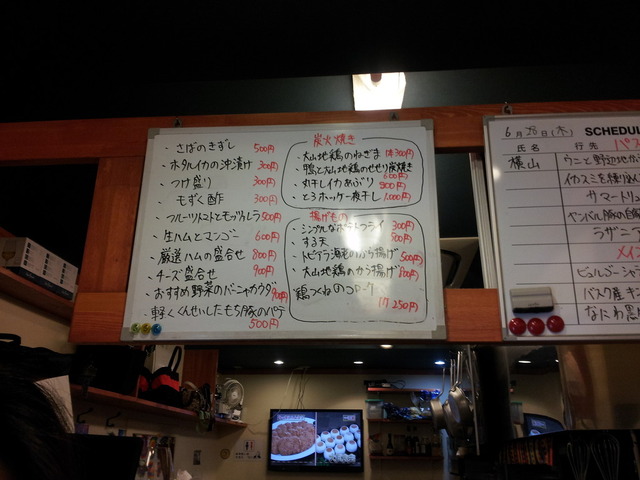 ・さばのきずし 500円
・ホタルイカの沖漬け 300円
・つけ盛り 300円
・もずく酢 300円
・フルーツトマトとモッツァレラ 500円
・生ハムとマンゴー 600円
・厳選ハムの盛合せ 800円
・チーズ盛合せ 900円
・おすすめ野菜のバーニャカウダ 900円
・軽くくんせいしたもち豚のパテ
500円
炭火焼き
・大山地鶏のねぎま 1本300円
・鴨と大山地鶏のせせり炭焼き
600円
・丸干しイカあぶり
・とろホッケ一夜干し 1,000円
揚げもの
・シンプルなポテトフライ 300円
・する天
・トビアラ海老のから揚げ 500円
・大山地鶏のから揚げ
・鶏つくねのコロッケ
1ケ 250円
6月28日(木) SCHEDUL
氏名 行先
横山 ウニと野辺地か
イカスミを練り込ん
サマートリュ
ラザニア
メイン
ビュルゴーニュ
バスク産キン
なにわ黒